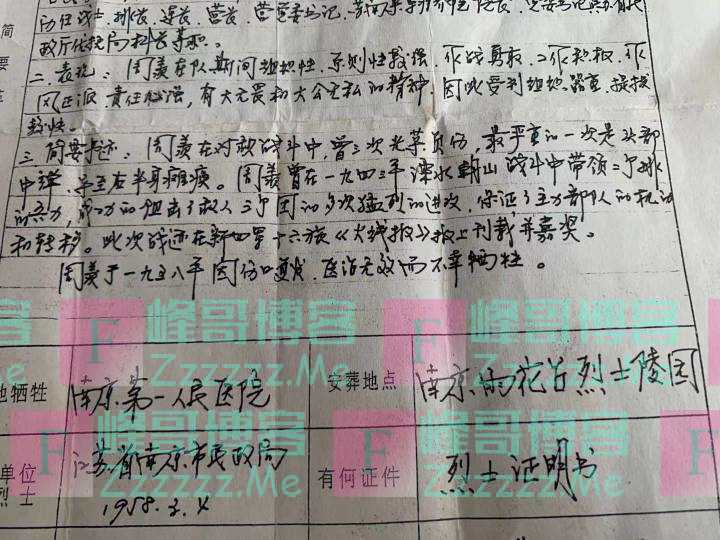 历任战士、排长、连长、营长、营党委书记、
政厅优抚局科长等职。
二、表现:周美在队期间组织性、原则性较强,作战勇敢,工作积极,作
风正派,责任心强,有大无畏和大公无私的精神,因此受到组织器重,提拔
较快。
三、简要事迹:周美在对敌战斗中,曾三次光荣负伤,最严重的一次是头部
中弹,导至右半身瘫痪。周美曾在一九四三年溧水 山战斗中带领二个排
的兵力,成功的阻击了敌人三个团的多次猛烈的进攻,保证了主力部队的机动
和转移。此次战迹在新四军十六旅《火线报》报上刊载并嘉奖。
周美于一九五八年因伤口复发,医治无效而不幸牺牲。
简
要
地牺牲
南京第一人民医院
安葬地点
南京雨花台烈士陵园
单位
烈士
江苏省南京市民政局
1958.3.4
有何证件
烈士证明书
F 峰哥博客
Zzzzzz.Me
F 峰哥博客
Zzzzzz.Me
F 峰哥博客
Zzzzzz.Me
F 峰哥博客
Zzzzzz.Me